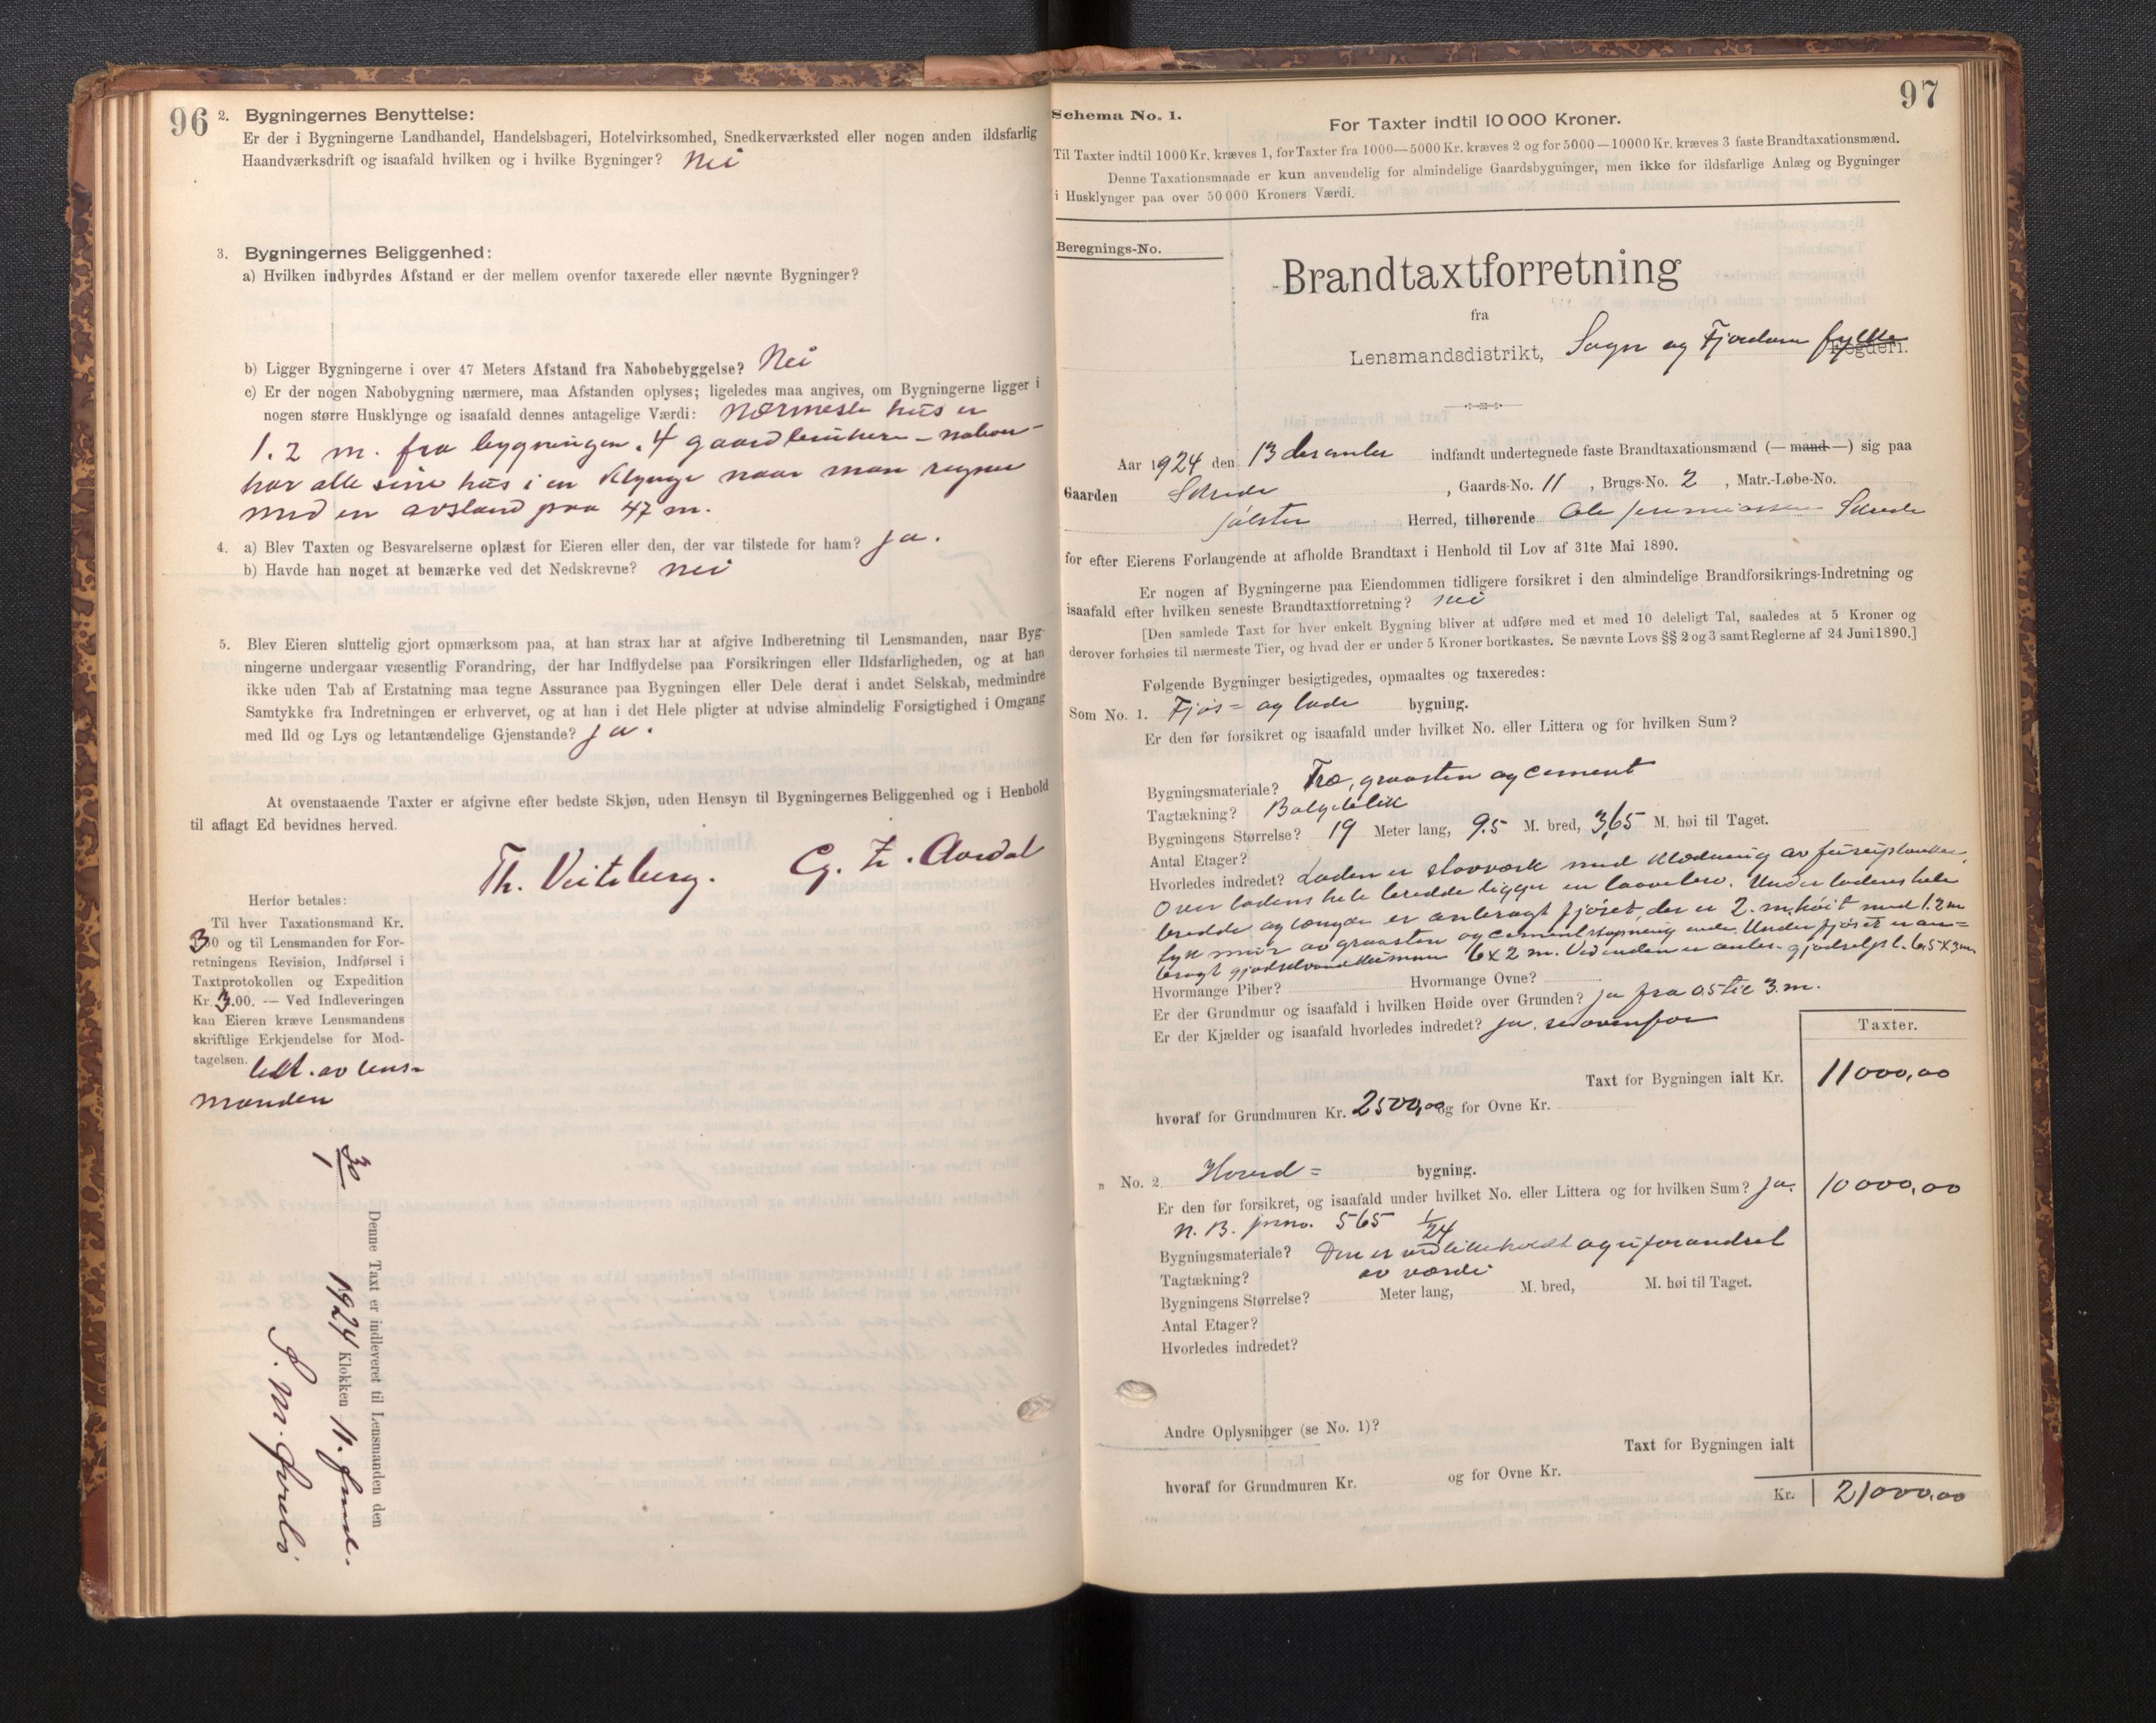 96
2. Bygningernes Benyttelse:
Er der i Bygningerne Landhandel, Handelsbageri, Hotelvirksomhed, Snedkerværksted eller nogen anden ildsfarlig
Haandværksdrift og isaafald hvilken og i hvilke Bygninger? Nei
3. Bygningernes Beliggenhed:
a) Hvilken indbyrdes Afstand er der mellem ovenfor taxerede eller nævnte Bygninger?
b) Ligger Bygningerne i over 47 Meters Afstand fra Nabobebyggelse? Nei
c) Er der nogen Nabobygning nærmere, maa Afstanden oplyses; ligeledes maa angives, om Bygningerne ligger i
nogen større Husklynge og isaafald dennes antagelige Værdi: Nærmeste hus er
1.2 m. fra bygningen. 4 gaardbrukere - naboer -
har alle sine hus i en klynge naar man regner
med en avstand paa 47 m.
4. a) Blev Taxten og Besvarelserne oplæst for Eieren eller den, der var tilstede for ham? Ja.
b) Havde han noget at bemærke ved det Nedskrevne? Nei
5. Blev Eieren sluttelig gjort opmærksom paa, at han strax har at afgive Indberetning til Lensmanden, naar Byg-
ningerne undergaar væsentlig Forandring, der har Indflydelse paa Forsikringen eller Ildsfarligheden, og at han
ikke uden Tab af Erstatning maa tegne Assurance paa Bygningen eller Dele deraf i andet Selskab, medmindre
Samtykke fra Indretningen er erhvervet, og at han i det Hele pligter at udvise almindelig Forsigtighed i Omgang
med Ild og Lys og letantændelige Gjenstande? Ja.
At ovenstaaende Taxter er afgivne efter bedste Skjøn, uden Hensyn til Bygningernes Beliggenhed og i Henhold
til aflagt Ed bevidnes herved.
Th. Veiteberg. G. T. Aardal
Herfor betales:
Til hver Taxationsmand Kr.
3 og til Lensmanden for For-
retningens Revision, Indførsel i
Taxtprotokollen og Expedition
Kr. 3.00. — Ved Indleveringen
kan Eieren kræve Lensmandens
skriftlige Erkjendelse for Mod-
tagelsen.
av lens-
manden
Denne Taxt er indleveret til Lensmanden den
30/1 1924 Klokken 11.
97
Schema No. 1.
For Taxter indtil 10 000 Kroner.
Til Taxter indtil 1000 Kr. kræves 1, for Taxter fra 1000—5000 Kr. kræves 2 og for 5000—10000 Kr. kræves 3 faste Brandtaxationsmænd.
Denne Taxationsmaade er kun anvendelig for almindelige Gaardsbygninger, men ikke for ildsfarlige Anlæg og Bygninger
i Husklynger paa over 50 000 Kroners Værdi.
Beregnings-No.
Brandtaxtforretning
fra
Lensmandsdistrikt, Sogn og Fjordane fylke Fogderi.
Aar 1924 den 13 desember indfandt undertegnede faste Brandtaxationsmænd (— mand —) sig paa
Gaarden Skrede, Gaards-No. 11, Brugs-No. 2, Matr.-Løbe-No.
Jølster Herred, tilhørende Ole Jeremiassen Skrede
for efter Eierens Forlangende at afholde Brandtaxt i Henhold til Lov af 31te Mai 1890.
Er nogen af Bygningerne paa Eiendommen tidligere forsikret i den almindelige Brandforsikrings-Indretning og
isaafald efter hvilken seneste Brandtaxtforretning? Nei
[Den samlede Taxt for hver enkelt Bygning bliver at udføre med et med 10 deleligt Tal, saaledes at 5 Kroner og
derover forhøies til nærmeste Tier, og hvad der er under 5 Kroner bortkastes. Se nævnte Lovs §§ 2 og 3 samt Reglerne af 24 Juni 1890.]
Følgende Bygninger besigtigedes, opmaaltes og taxeredes:
Som No. 1. Fjøs- og lade bygning.
Er den før forsikret og isaafald under hvilket No. eller Littera og for hvilken Sum?
Bygningsmateriale? Træ, graasten og cement
Tagtækning? Bølgeblik
Bygningens Størrelse? 19 Meter lang, 9.5 M. bred, 3,65 M. høi til Taget.
Antal Etager?
Hvorledes indredet? Laden er stavverk med klædning av furuplanker.
Over ladens hele bredde ligger en laavebro. Under ladens hele
bredde og længde er anbragt fjøset, der er 2. m. høit med 1.2 m
tyk mur av graasten og cementstøpning inde. Under fjøset er an-
bragt gjødselvandkummer 6 x 2 m. Ved enden er anbr. gjødselpl. 6.5 x 3 m.
Hvormange Piber? Hvormange Ovne?
Er der Grundmur og isaafald i hvilken Høide over Grunden? Ja fra 0.5 til 3. m.
Er der Kjælder og isaafald hvorledes indredet? Ja, se ovenfor
Taxter.
Taxt for Bygningen ialt Kr. 11000,00
hvoraf for Grundmuren Kr. 2500,00 og for Ovne Kr.
" No. 2. Hoved- bygning.
Er den før forsikret, og isaafald under hvilket No. eller Littera og for hvilken Sum? Ja. 10000,00
N. B. 565 1/24
Bygningsmateriale? Den er vedlikeholdt og uforandret
Tagtækning? av værdi
Bygningens Størrelse? Meter lang, M. bred, M. høi til Taget.
Antal Etager?
Hvorledes indredet?
Andre Oplysninger (se No. 1)?
Taxt for Bygningen ialt
hvoraf for Grundmuren Kr. og for Ovne Kr.
Kr. 21000,00